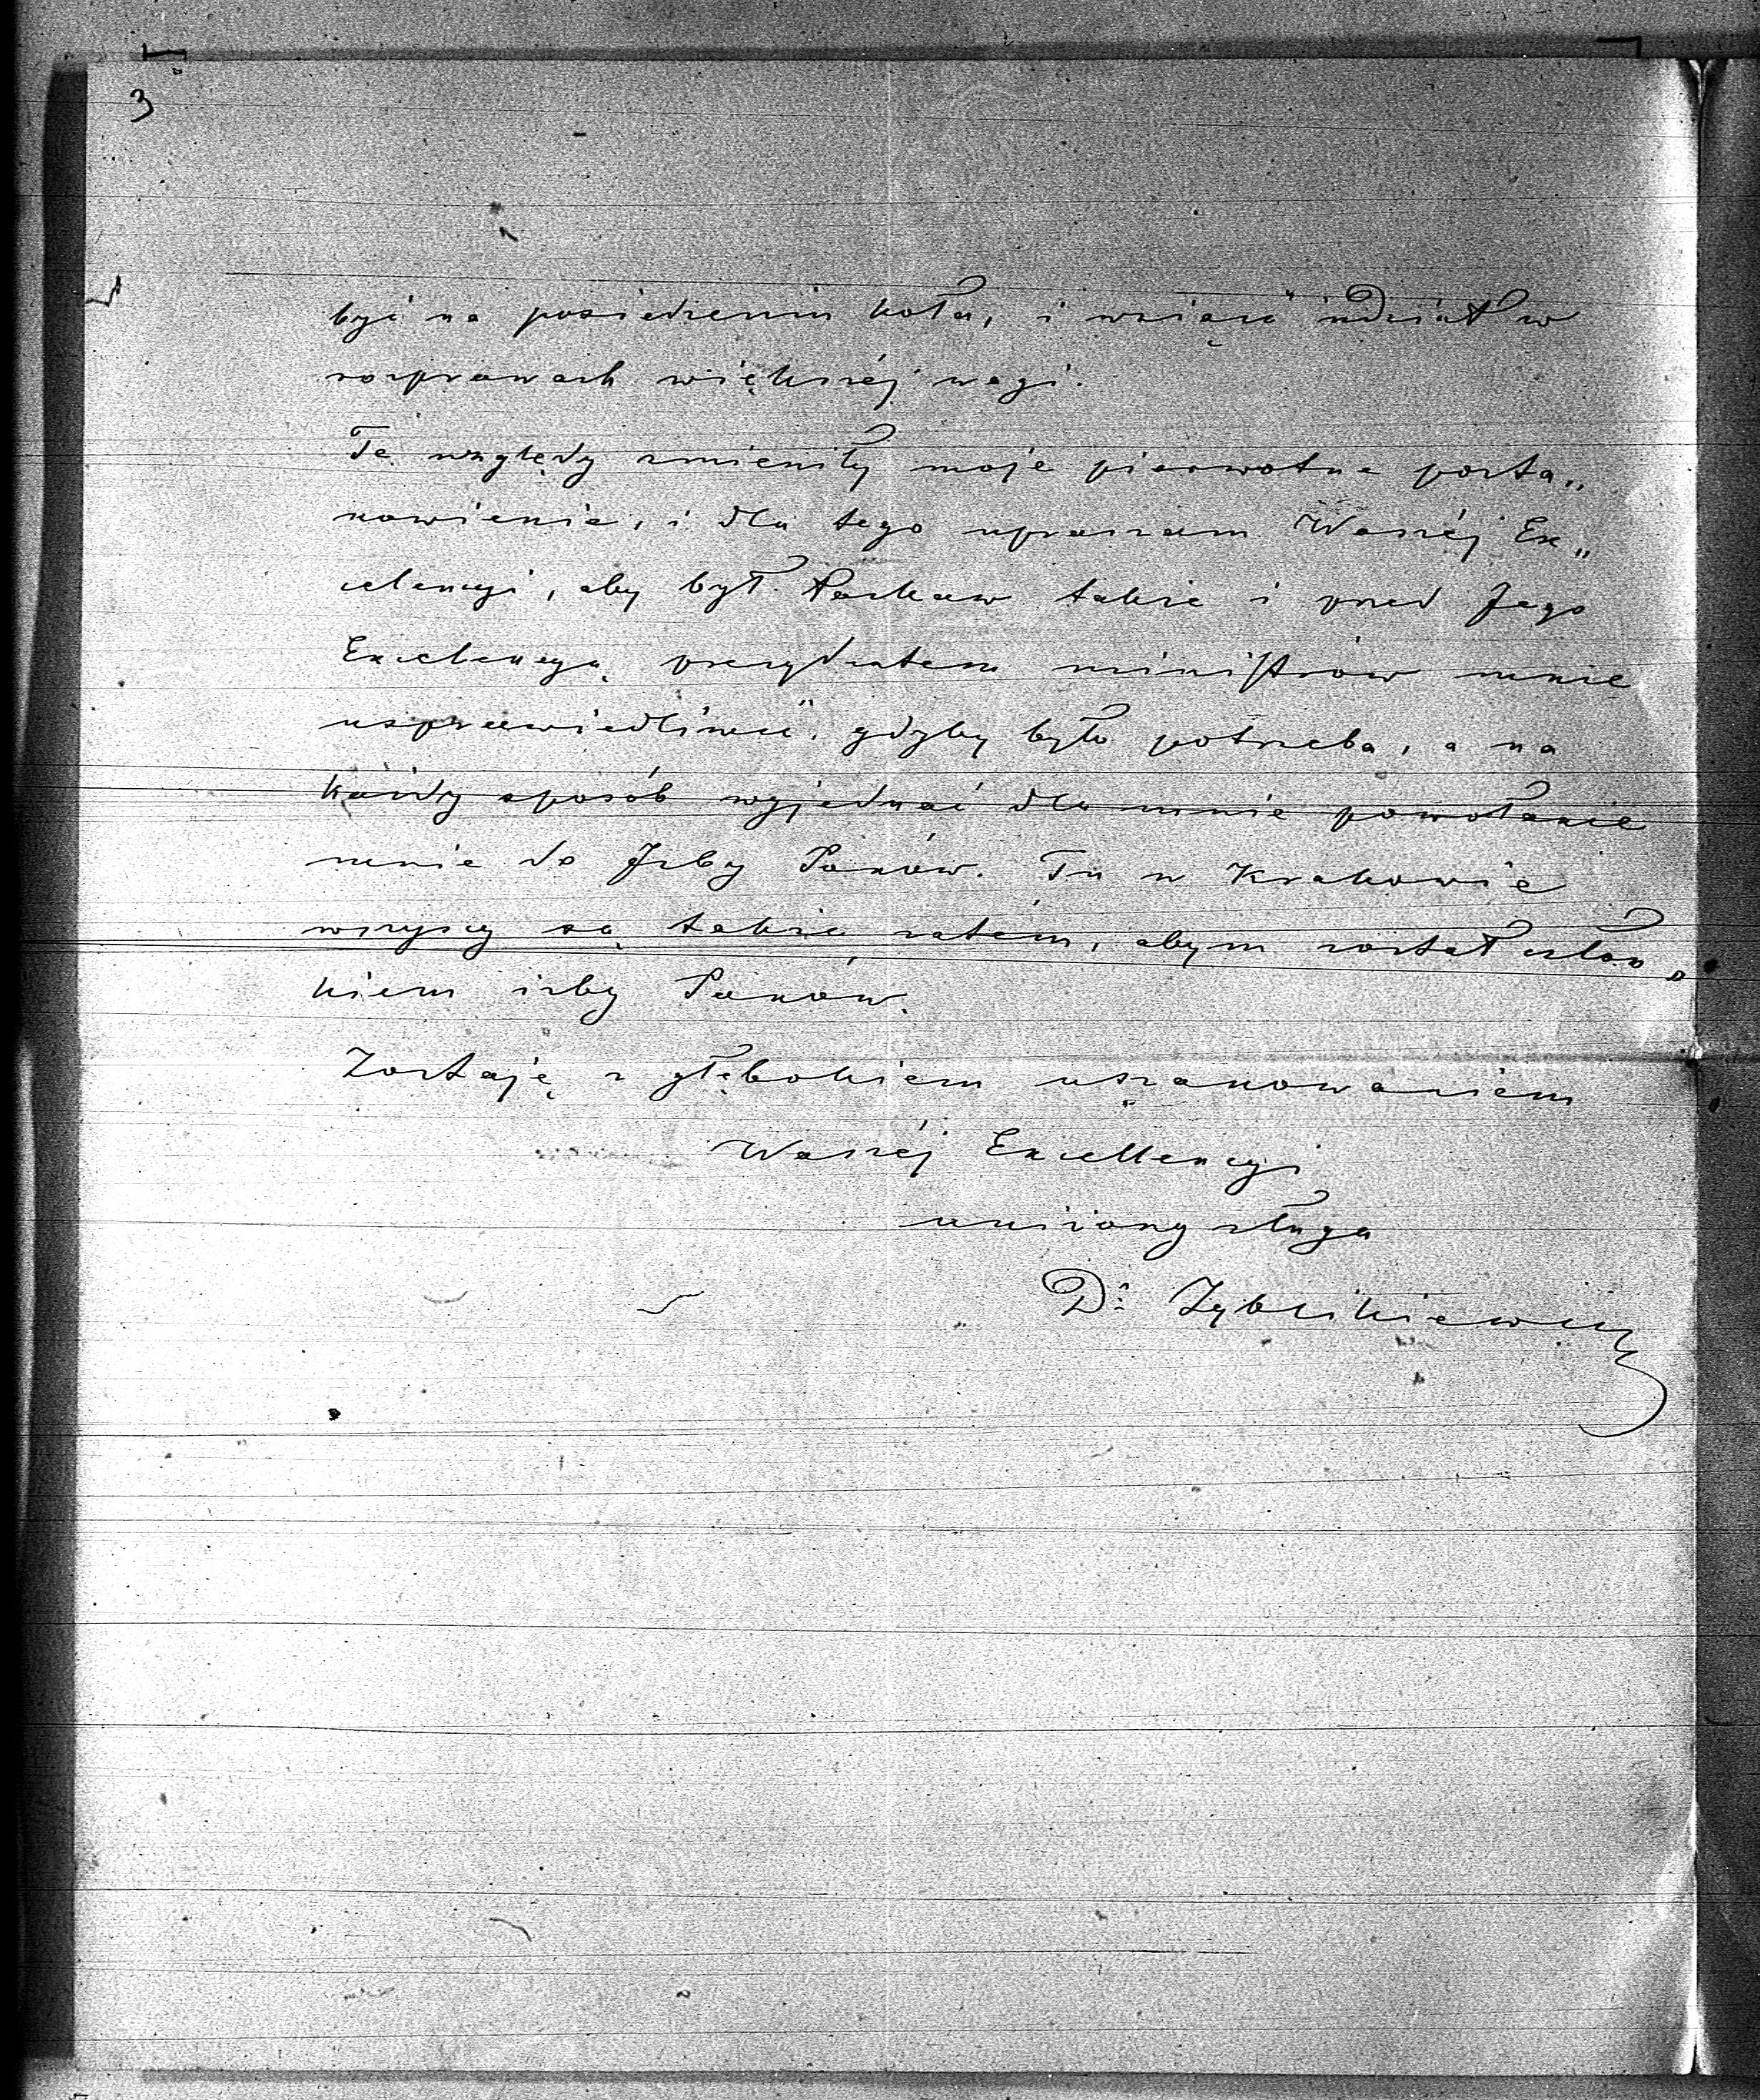 3
być na posiedzeniu koła, i wziąść udział w
rozprawach większéj wagi.
Te względy zmieniły moje pierwotne posta„
nowienie, i dla tego upraszam Waszéj Ex„
celencyi, aby był łaskaw także i przed Jego
Excelencyą prezydentem ministrów mnie
usprawiedliwić, gdyby było potrzeba, a na
każdy sposób wyjednać dla mnie powołanie
mnie do Izby Panów. Tu w Krakowie
wszyscy są także zatém, abym został człon
kiem izby Panów.
Zostaję z głębokiem uszanowaniem
Waszéj Excellencyi
uniżony sługa
Dr Zyblikiewicz